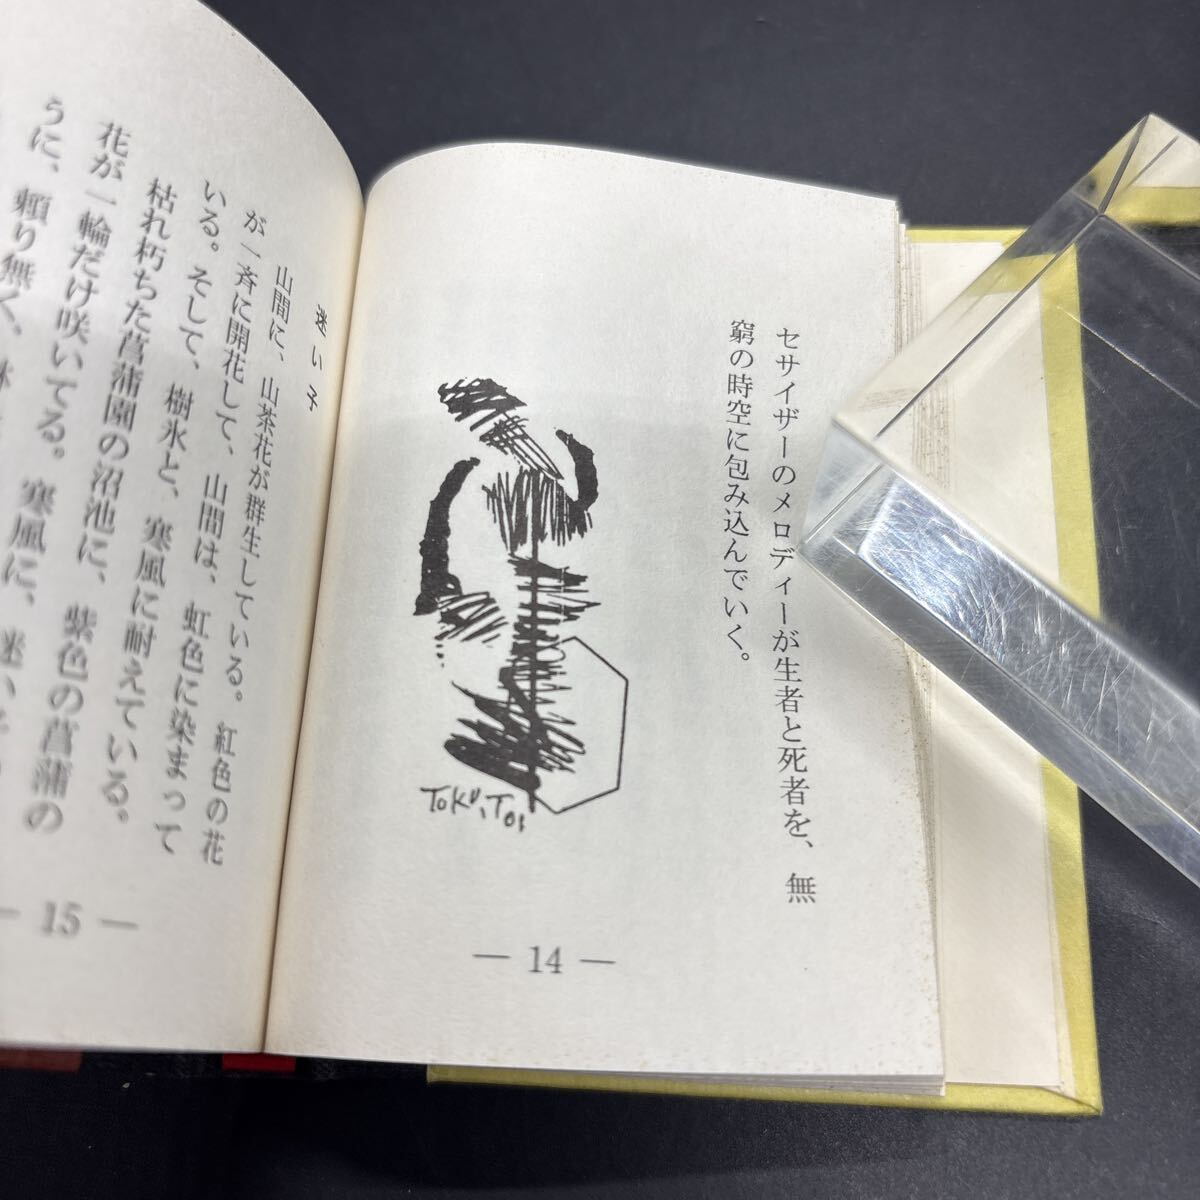 セサイザーのメロディーが生者と死者を、無
窮の時空に包み込んでいく。
TOKU,TOS
— 14 —
迷い子
山間に、山茶花が群生している。紅色の花
が一斉に開花して、山間は、虹色に染まって
いる。そして、樹氷と、寒風に耐えている。
枯れ朽ちた菖蒲園の沼池に、紫色の菖蒲の
花が一輪だけ咲いてる。寒風に、迷い子
うに、頼り無く、
— 15 —